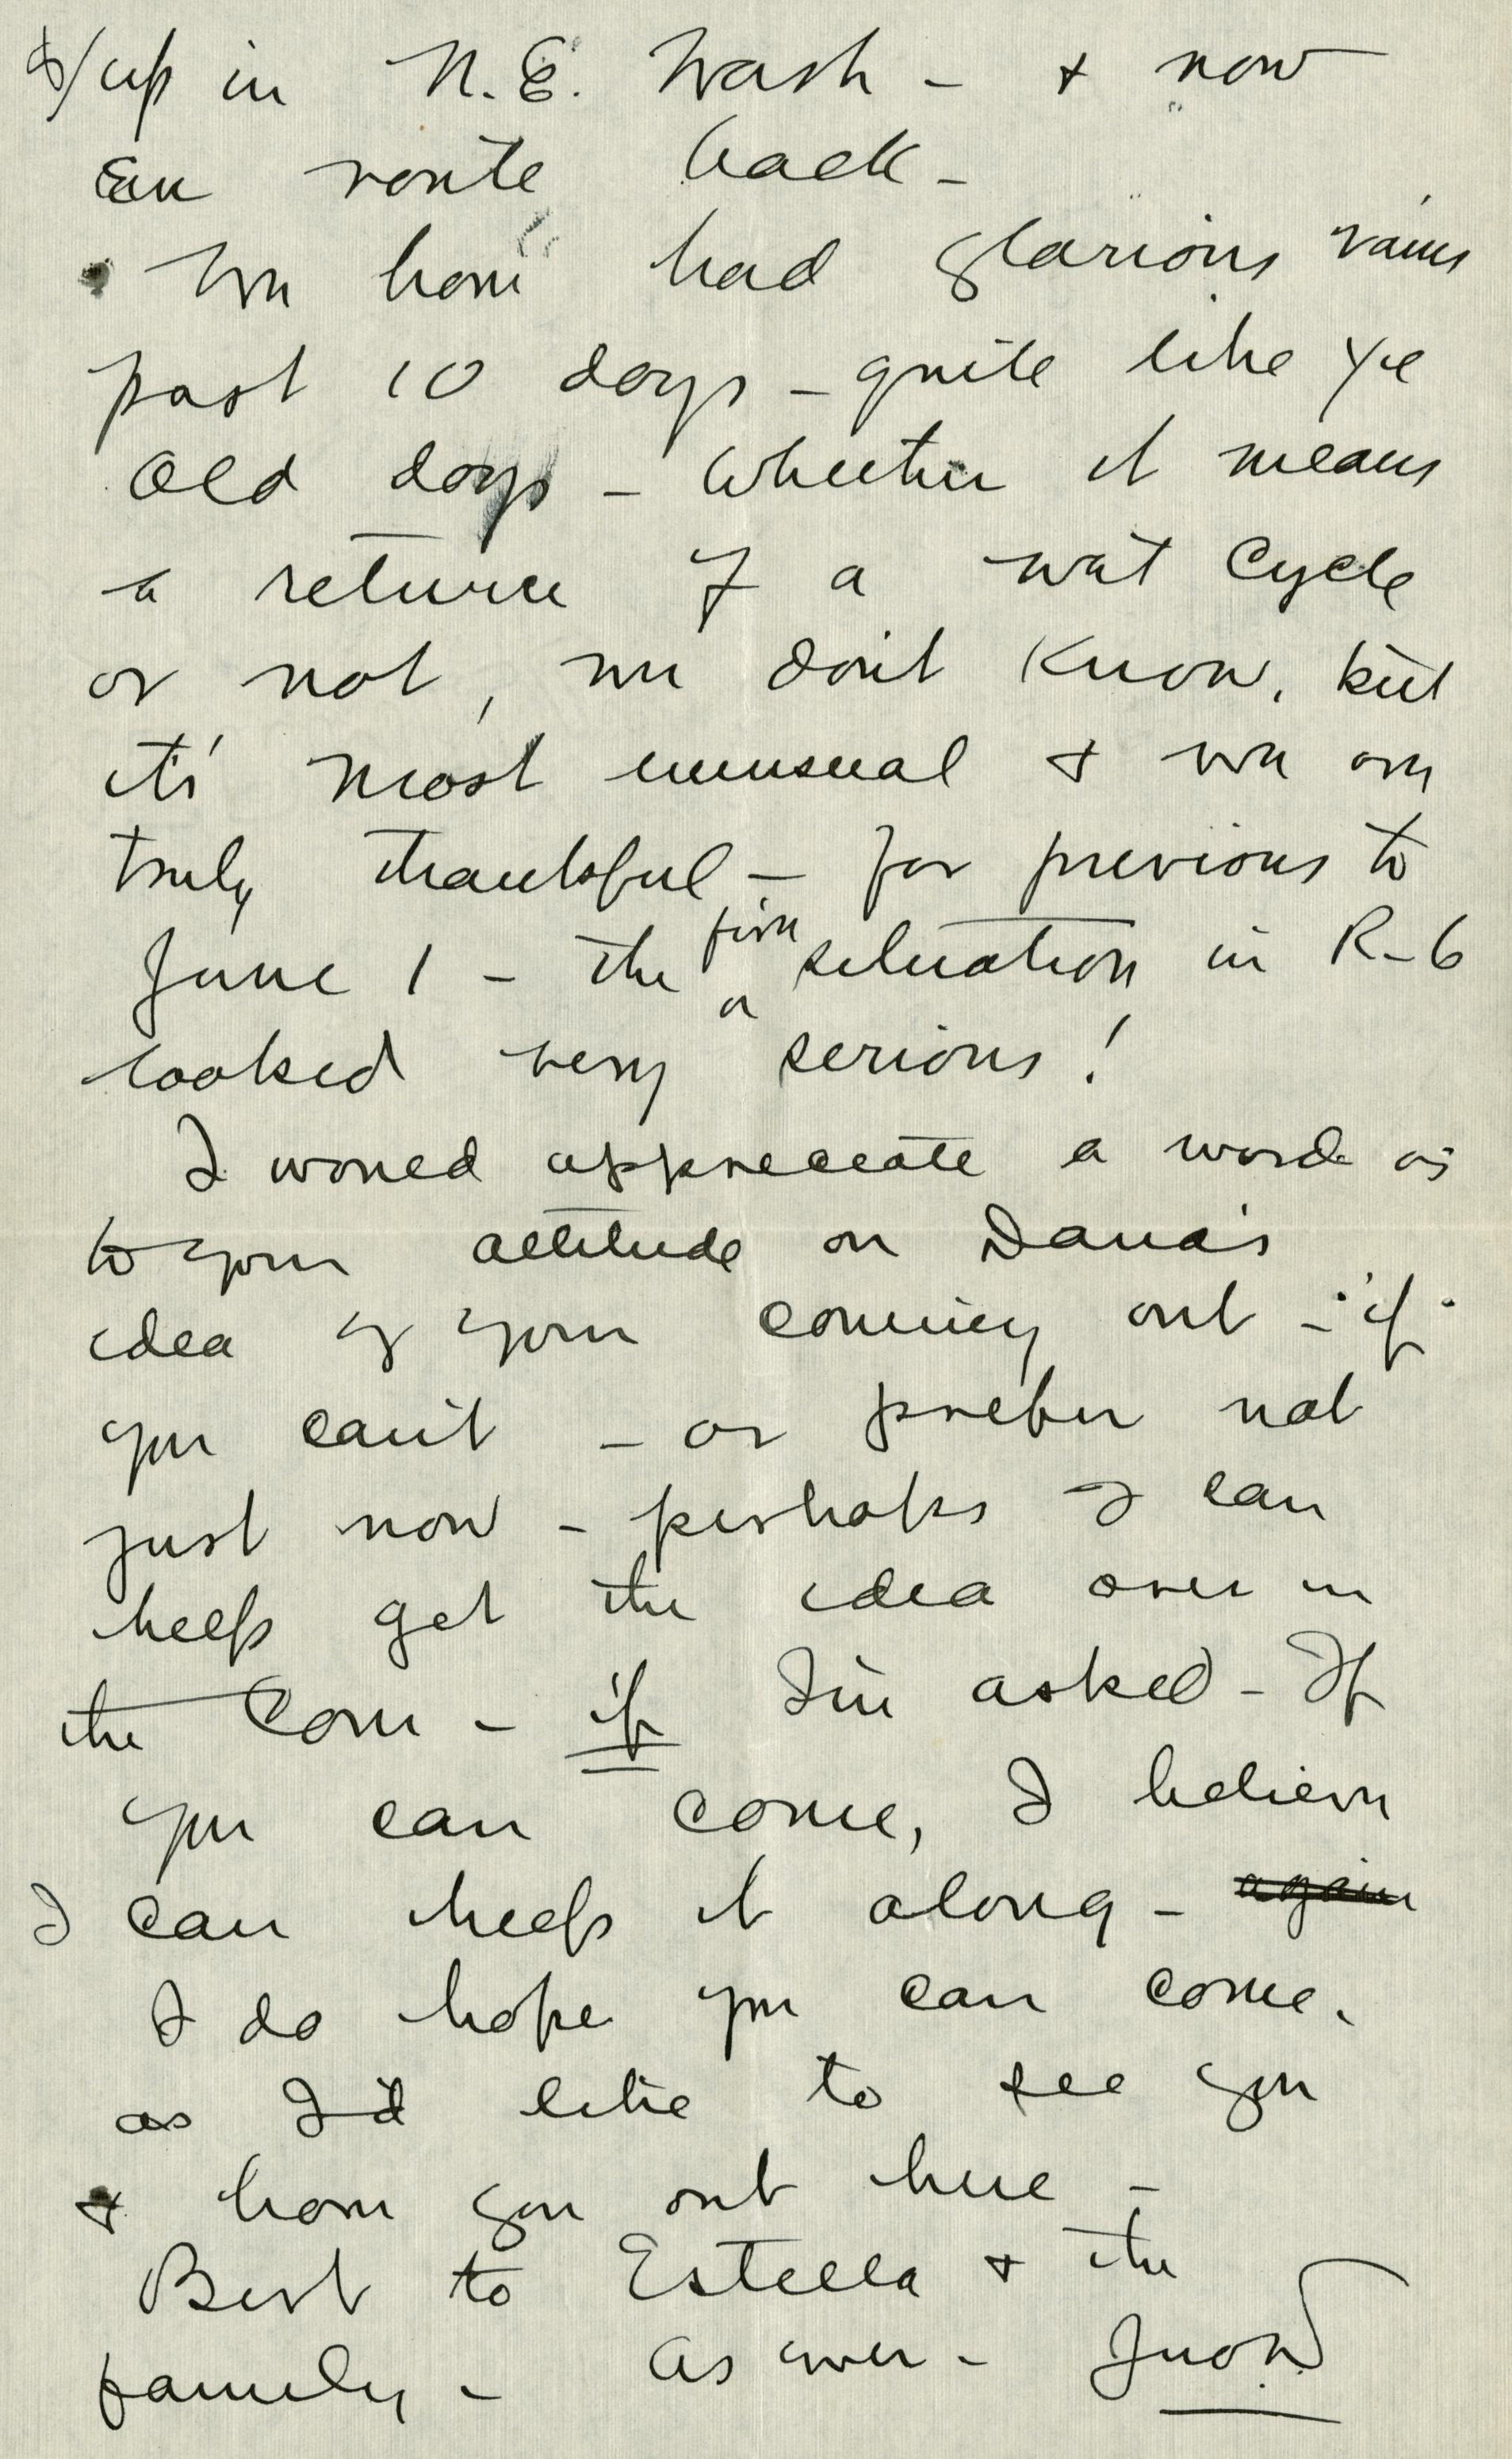 up in N.E. Wash - & now
En route back -
We have had glorious rains
past 10 days - quite like ye
old days - Whether it means
a return of a wet cycle
or not, we don't know, but
it's most unusual & we are
truly thankful - for previous to
June 1 - the fire situation in R-6
looked very serious!
I would appreciate a word as
to your attitude on Dana's
idea of your coming out - "if"
you can't - or prefer not
just now - perhaps I can
help get the idea over in
the Com - if I'm asked - If
you can come, I believe
I can help it along - again
I do hope you can come.
as I'd like to see you
& have you out here -
Best to Estella & the
family - As ever -